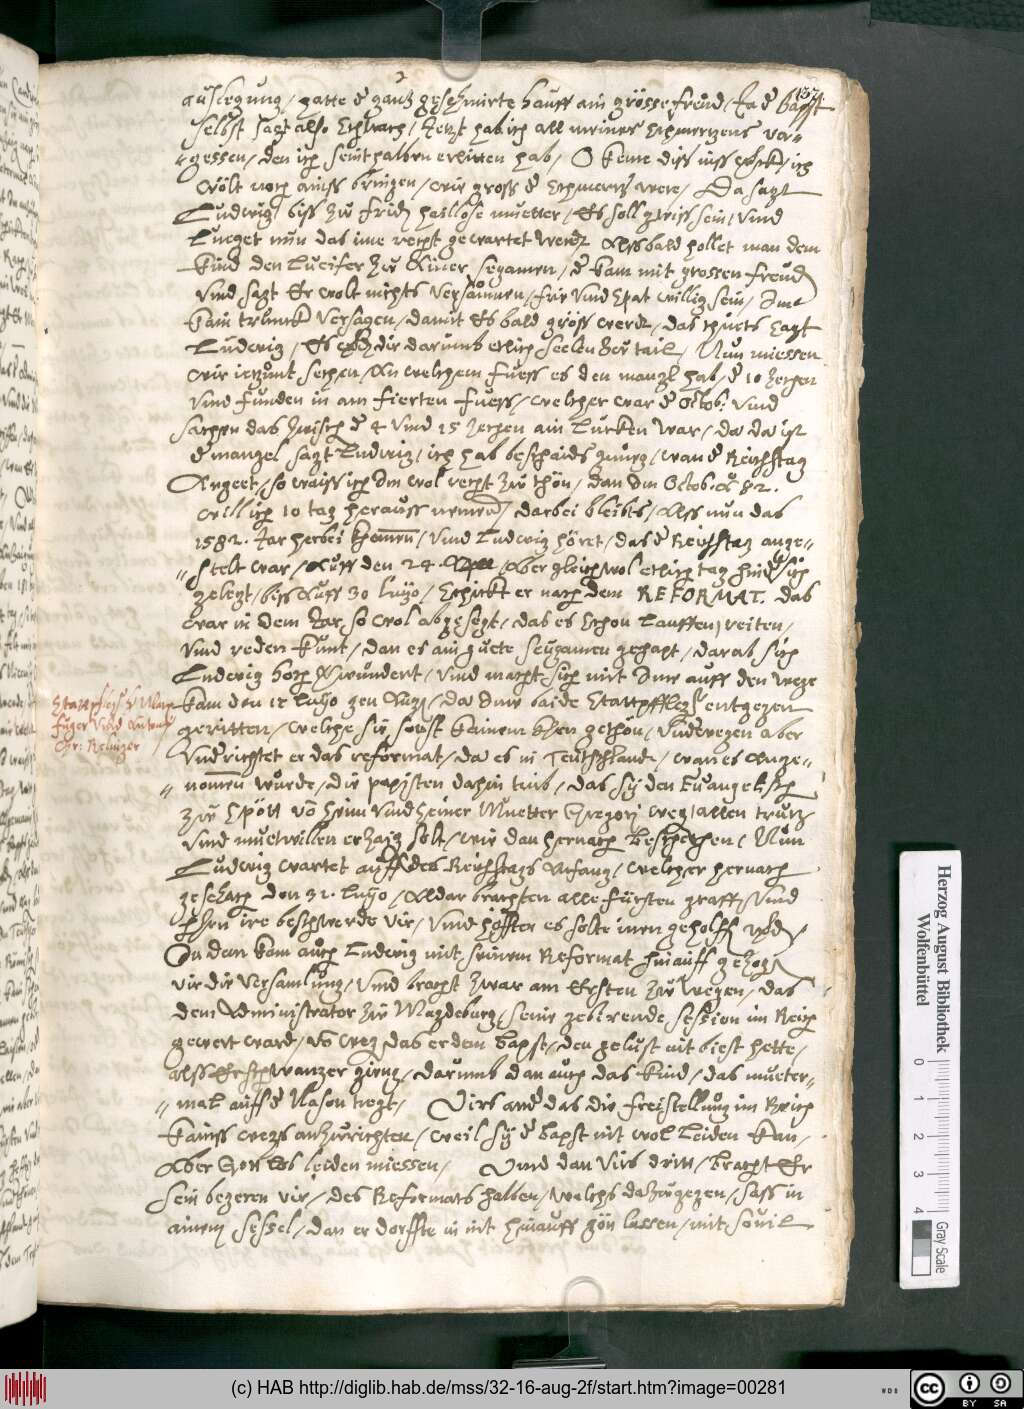 137
auslegung, hatte d gantz geschmirte hauff ain grosse freud, Ja d bapst
selbst sagt also Schwartz, Jetzt hab ich all meiner Schmertzens ver-
gessen, den ich seinthalben erlitten hab, O keme diss
wölt noch ainss bringen, wie gross d Schmertz were, Da sagt
Ludwig, biss zů frid haillose muetter, Es soll gwiss sein, und
Lueget nun das ime recht gewartet werd. Alssbald hollet man dem
kind den Lucifer zů Ainer segamen, d kam mit grossen freud
und sagt Er wolt nichts versaumen, frie und spat willig sein, Ime
kain trunck versagen, damit Es bald gross werd, das thuets sagt
Ludwig, Es dir darumb etlich seelen zu tail, Nun miessen
wir ietzunt sechen, An welchem fuess es den mangl hab, d 10 Zechen
und funden in am fierten fuess, welcher war d Octob: und
sachen das zwisch d 4 und 15 Zechen ain Lucken war, da da ist
d mangel sagt Ludwig, ich hab beschaids gnug, wan d Reichstag
Angeet, so waiss ich Im wol recht zů thon, dan Im Octob. A 82.
will ich 10 tag herauss nemen, darbei bleibts, Alss nun das
1582. Jar herbei komen, und Ludwig höret, das d Reichstag ange-
stelt war, Auff den 24. Aber gleichwol etlich tag hind sich
gelegt, biss Auff 30 Luijo, Schickt er nach dem REFORMAT. das
war in dem Jar, so wol abgesegt, das es schon lauffen, reiten,
und reden kunt, dan es ain guete seugamen gehapt, darab sich
Ludwig hoch verwundert, und macht sich mit Ime auff den wege
kam den Luijo gen Augs, da Ime baide Stattpfleg entgegen
Stattpfleg
Fuger und Antoni
Chr: Relinger
geritten, welche sie sonst kainem k gethon, Underwegen aber
Underrichtet er das reformat, da es in Teutschland, wan es Ange-
nomen wurde, die papisten dahin trib, das sy den Euangelisch
zů Spott von seinem und seiner Muetter Gregorj weg, allen trutz
und muetwillen erzaig solt, wie dan hernach beschechen, Nun
Ludwig wartet auff des Reichstags Anfang, welcher hernach
geschach den 31. Luijo, Aldar brachten alle fürsten graff, und
herrn ire beschwerde vir, und hofften es solte inen geholffen werd,
In dem kam auch Ludwig mit seinem Reformat hinauff gezog
vir die versamlung, und bracht zwar am Ersten zů wegen, das
dem Administrator zů Magdeburg, seine gebirende session im Reich
gewert ward, von weg das er dem bapst, den gelust nit biest hette,
alss Er schwanger gieng, darumb dan auch das kind, das mueter-
mal auff d Nason tregt, Virs and das die freistellung im Reich
kainss wegs anzurichten, weil sy d bapst nit wol leiden kan,
Aber Gott Es leiden miessen, Und dan virs dritt, bracht Er
sein begeren vir, des Reformats halben, welchs dazugegen, sass in
ainem sessel, dan er dorffte in nit hinauff gön lassen, mit souil
Herzog August Bibliothek
Wolfenbüttel
0 1 2 3 4
Gray Scale
(c) HAB http://diglib.hab.de/mss/32-16-aug-2f/start.htm?image=00281
WDB
cc BY SA